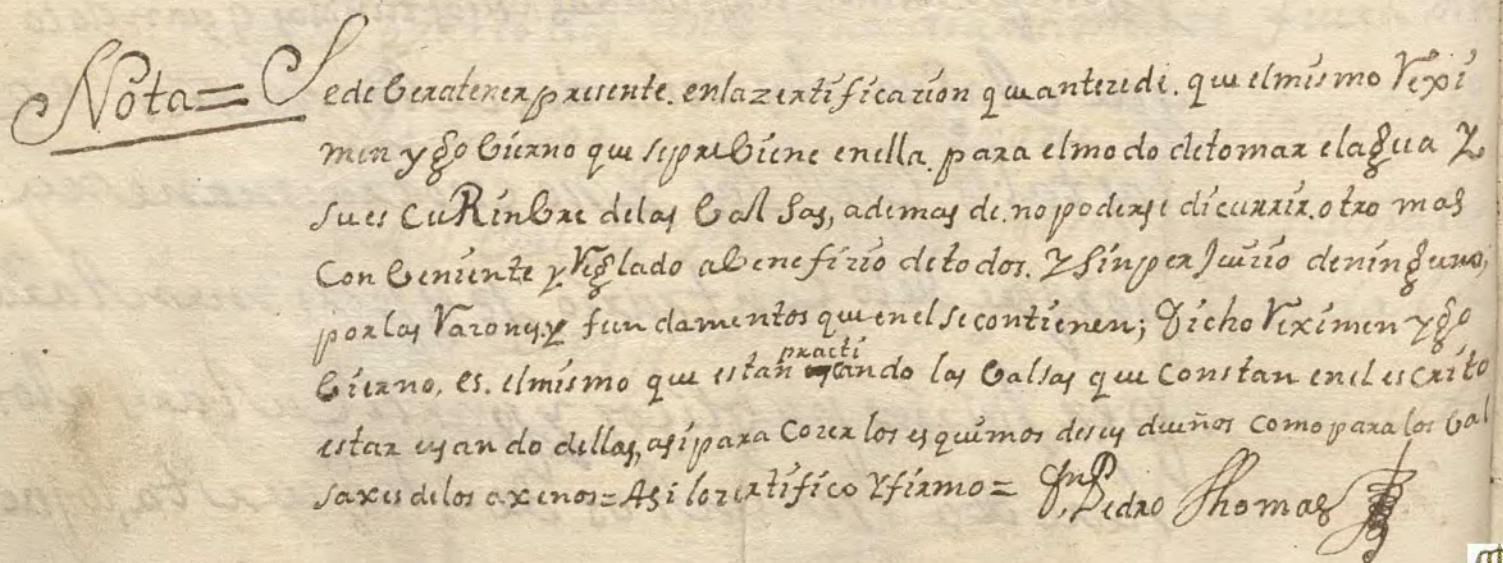 Nota= Sedeberatener presente. enlazertificazion queantezede. que elmismo Rexi
men y gobierno que seprebiene enella. para elmodo detomar elagua Y
su escuRinbre delas balsas, ademas de. no poderse dicurrir. otro mas
Conbeniente y Reglado abenefizio detodos. Y sinperJuizio deninguno,
porlas Razones. y fundamentos que enel secontienen; Dicho Reximen y go
bierno, es. elmismo que estan practicando las balsas que Constan enel escrito
estar usando dellas, asi para Cozer los esquimos desus dueños como para los bal
saxes delos axenos= Asi lozertifico Y firmo= Pedro Thomas